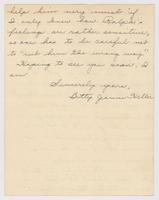 help him very much if
I only knew how. Ralph's
feelings are rather sensitive,
so one has to be careful not
to "rub him the wrong way."
Hoping to see you soon, I
am
Sincerely yours,
Betty Jeanne